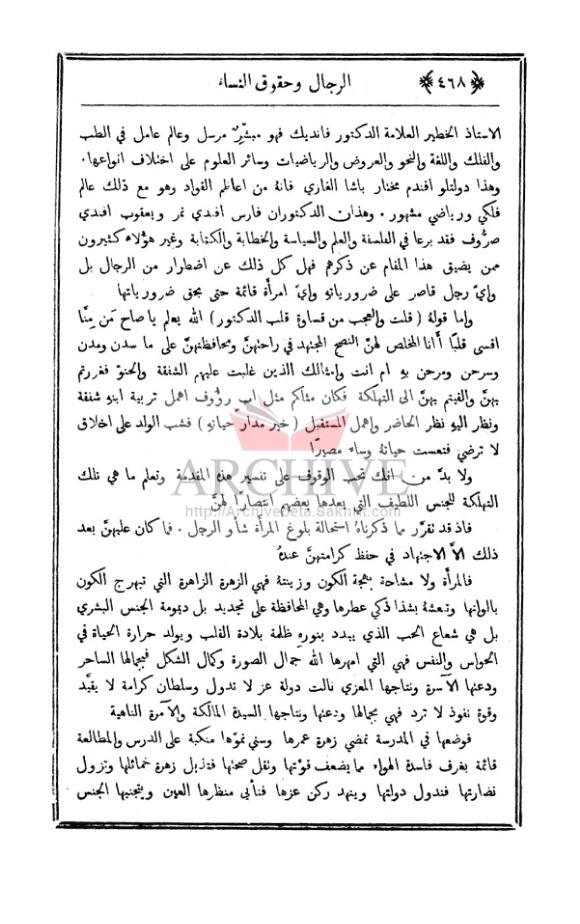 ﴿٤٦٨﴾ الرجال وحقوق النساء
الاستاذ الخطير العلامة الدكتور فانديك فهو مبشرٌ مرسل وعالم عامل في الطب
والفلك واللغة والنحو والعروض والرياضيات وسائر العلوم على اختلاف انواعها.
وهذا دولتلو افندم مختار باشا الغازي فانه من اعاظم القواد وهو مع ذلك عالم
فلكي ورياضي مشهور. وهذان الدكتوران فارس افندي نمر ويعقوب افندي
صرُّوف فقد برعا في الفلسفة والعلم والسياسة والخطابة والكتابة وغير هؤلاء كثيرون
ممن يضيق هذا المقام عن ذكرهم فهل كل ذلك عن اضطرار من الرجال بل
وايّ رجل قاصر على ضرورياتهِ وايّ امرأة قائمة حتى بحق ضرورياتها
واما قولهُ (قلت والعجب من قساوة قلب الدكتور) الله يعلم يا صاح مَن مِنَّا
اقسى قلبًا أَنا المخلص لهنّ النصح المجتهد في راحتهنّ ومحافظتهنّ على ما سدن ومدن
وسرحن ومرحن بهِ ام انت وامثالك الذين غلبت عليهم الشفقة والحنوّ فغررتم
بهنّ والقيتم بهنّ الى التهلكة فكان مثلكم مثل اب رؤُوف اهمل تربية ابنهِ شفقة
ونظر اليهِ نظر الحاضر واهمل المستقبل (خير مدار حياتهِ) فشب الولد على اخلاق
لا ترضي فتعست حياتهُ وساء مصيرًا
ولا بدّ من انك تحب الوقوف على تفسير هذه المقدمة وتعلم ما هي تلك
التهلكة للجنس اللطيف التي يعدها بعضهم انتصارًا لهنّ
فاذ قد تقرّر مما ذكرناهُ استحالة بلوغ المرأة شأو الرجل. فما كان عليهنّ بعد
ذلك الاَّ الاجتهاد في حفظ كرامتهنّ عندهُ
فالمرأة ولا مشاحة بهجة الكون وزينته فهي الزهرة الزاهرة التي تبهرج الكون
بالوانها وتنعشهُ بشذا ذكي عطرها وهي المحافظة على تجديد بل ديمومة الجنس البشري
بل هي شعاع الحب الذي يبدد بنورهِ ظلمة بلادة القلب ويولد حرارة الحياة في
الحواس والنفس فهي التي امهرها الله جمال الصورة وكمال الشكل فبجمالها الساحر
ودعتها الآسرة ونتاجها المعزي نالت دولة عز لا تدول وسلطان كرامة لا يقيَّد
وقوة نفوذ لا ترد فهي بجمالها ودعتها ونتاجها السيدة المالكة والآمرة الناهية
فوضعها في المدرسة تمضي زهرة عمرها وسني نموّها منكبة على الدرس والمطالعة
قائمة بغرف فاسدة الهواء مما يضعف قوّتها ويقل صحتها فتذبل زهرة خمائلها وتزول
نضارتها فتدول دولتها وينهد ركن عزها فتأبى منظرها العين ويتجنبها الجنس
ARCHIVE
http://Archivebeta.Sakhrit.com